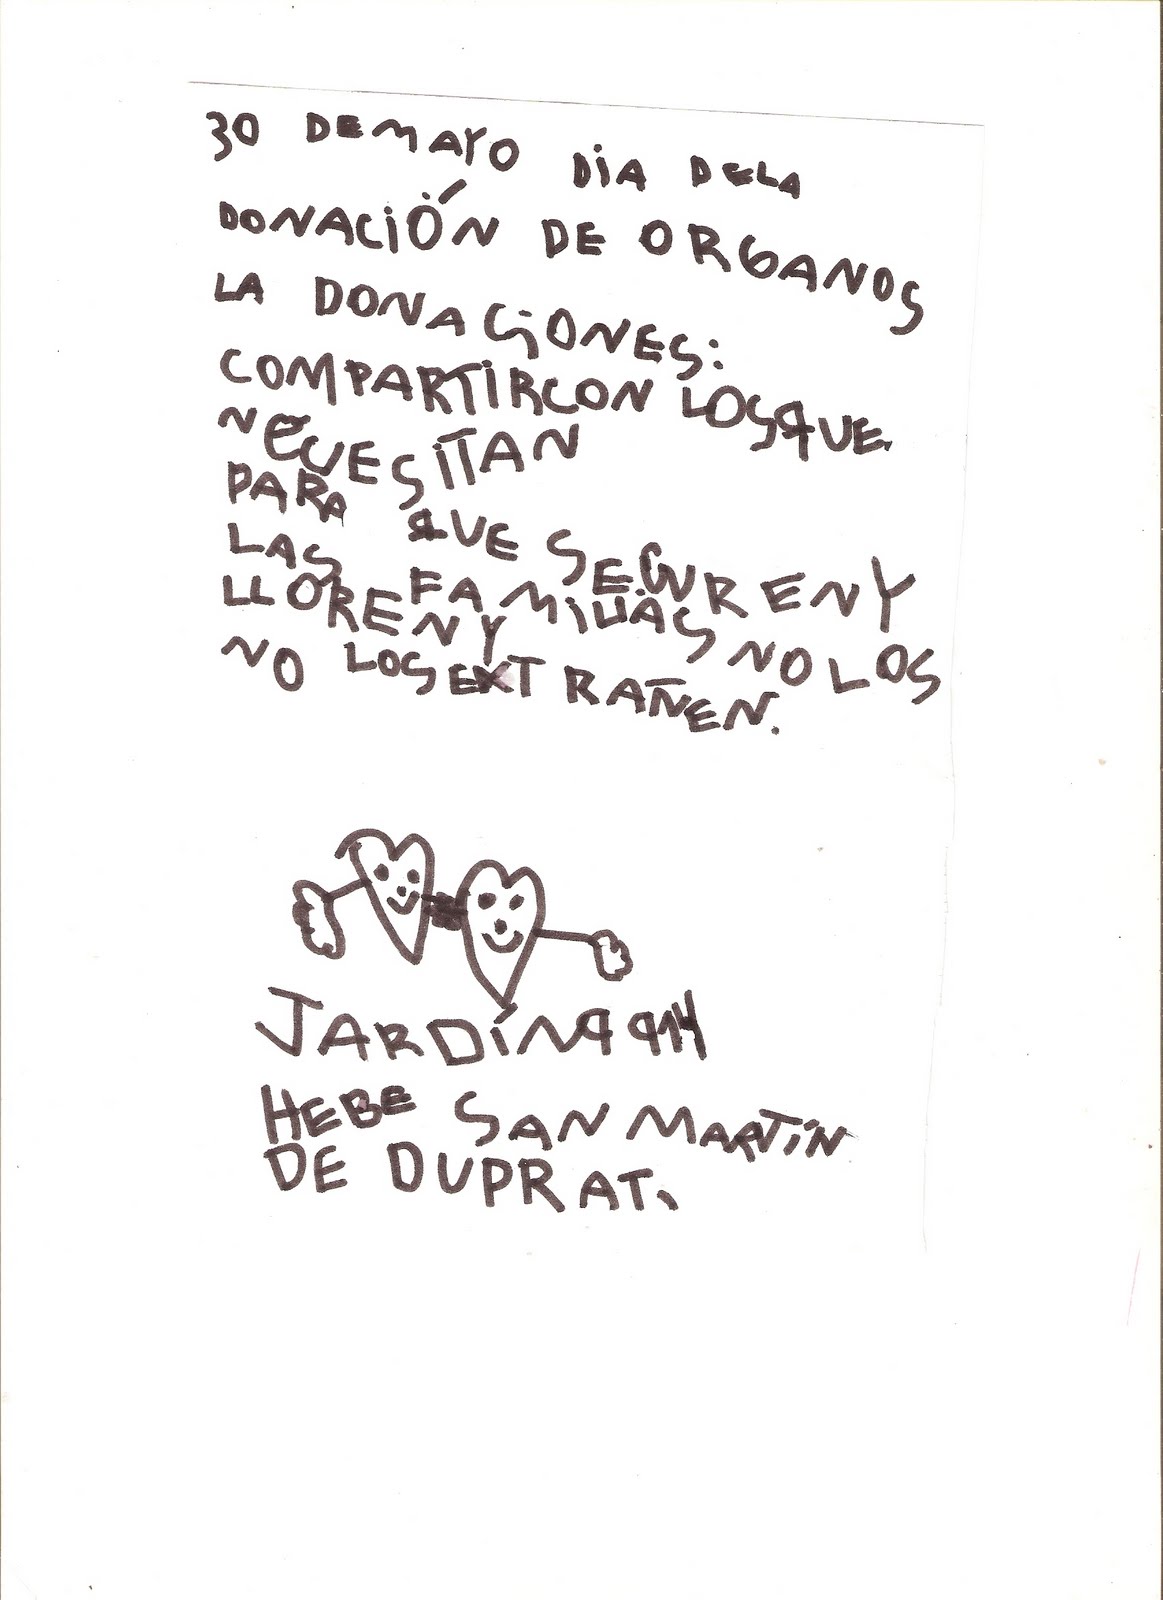 30 DE MAYO DIA DE LA
DONACIÓN DE ORGANOS
LA DONACIONES:
COMPARTIR CON LOS QUE
NECESITAN
PARA QUE SE CUREN Y
LAS FAMILIAS NO LOS
LLOREN Y
NO LOS EXTRAÑEN.
JARDÍN 914
HEBE SAN MARTÍN
DE DUPRAT.